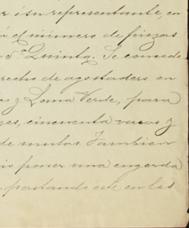 er ó su representante, en
a el número de piezas
5ª Quinta. Se concede
recho de agostadero en
s y Loma Verde, para
res, cincuenta vacas y
de mulas. Tambien
poner una engorda
portando este en las